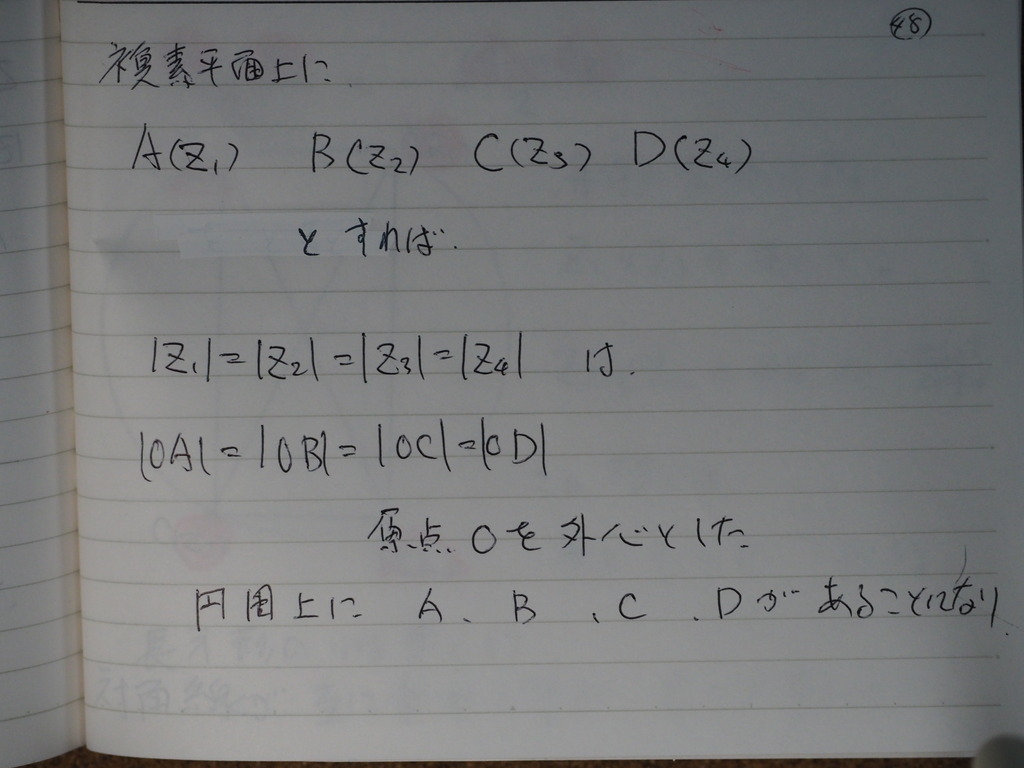 ㊽
複素平面上に、
A(Z₁) B(Z₂) C(Z₃) D(Z₄)
とすれば、
|Z₁|=|Z₂|=|Z₃|=|Z₄| は、
|OA|=|OB|=|OC|=|OD|
原点Oを外心とした
円周上に A、B、C、Dがあることになり、